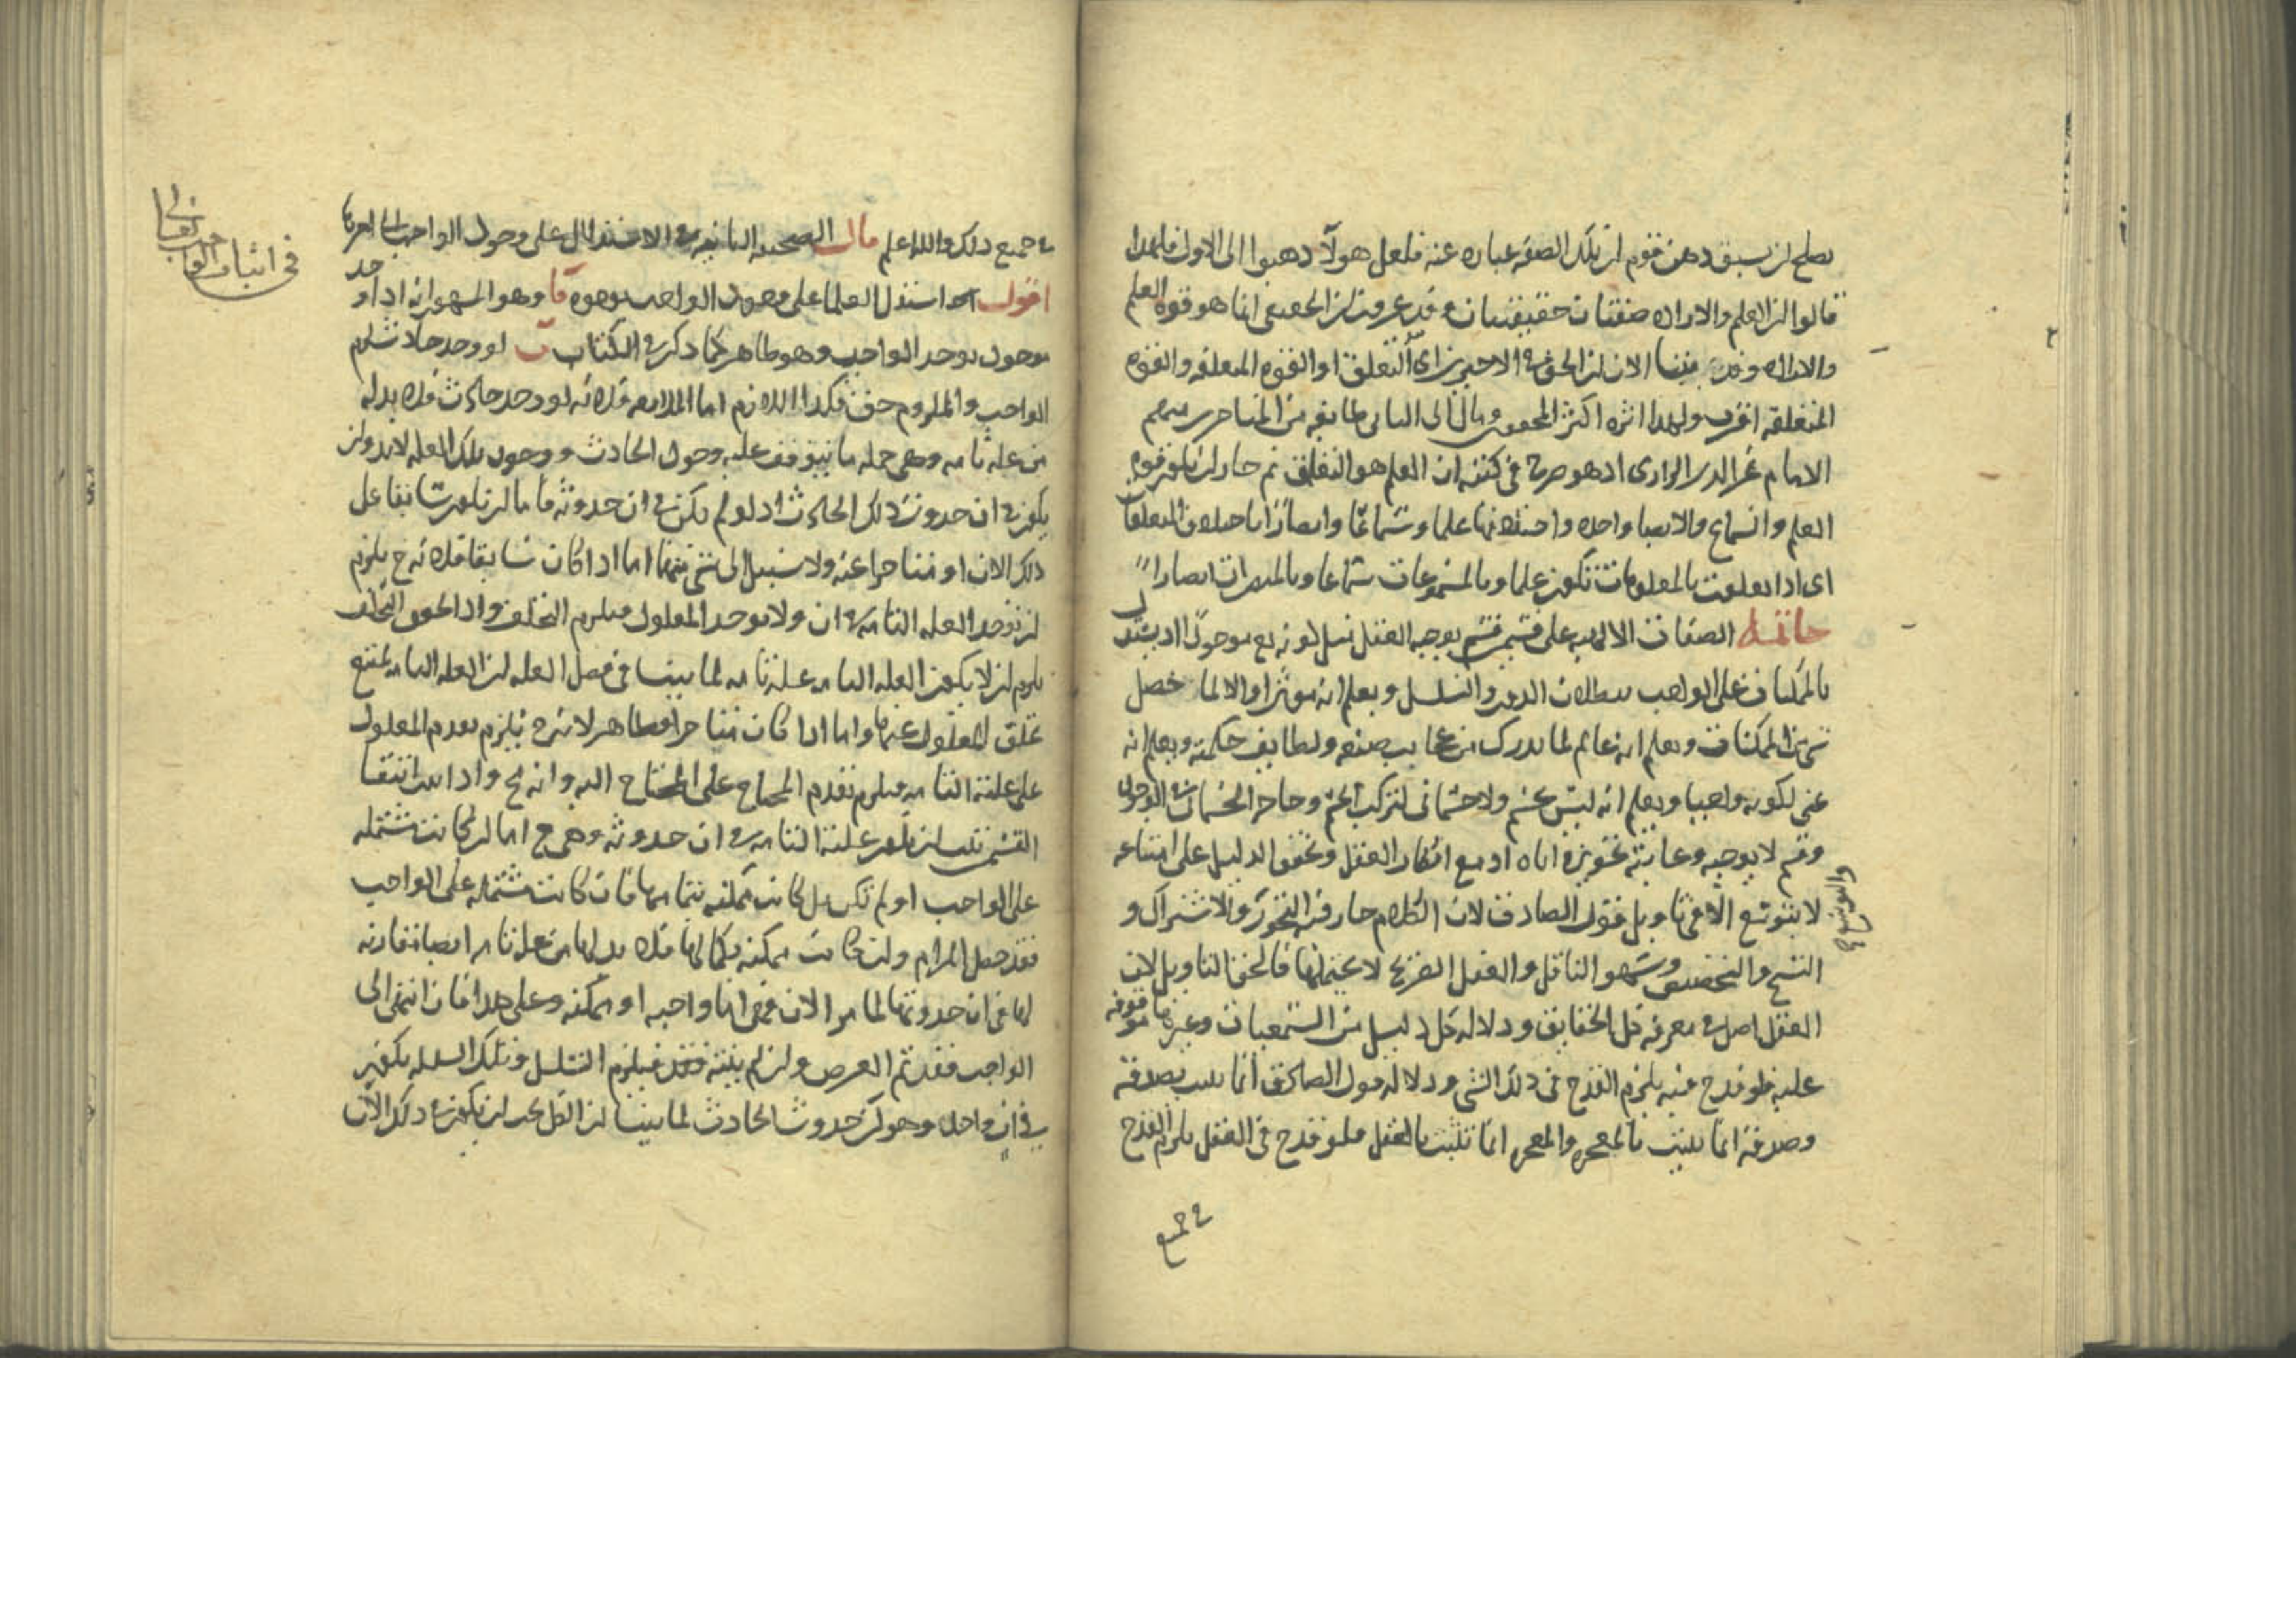 يصلح لان يسبق دهن قوم ان تلك الصفة عبارة عنه فلعل هولآ دهبوا الى الاول فلهدا
قالوا ان العلم والارادة صفتان حقيقيتان وقد عرفت ان الحقيقى انما هو قوة العلم
والارادة وقد بينا الان ان الحق فى الاخيرين اى التعلق او القوة المتعلقة والقوة
المتعلقة اقرب ولهدا اثره اكثر المحققين ومال الى الثانى طايفة من المتاخرين منهم
الامام فخر الدين الرازى اد هو صرح فى كتبه ان العلم هو التعلق ثم جاز ان تكون قوة
العلم والسماع والابصار واحدة واختلافها علما وسماعا وابصارا باختلاف المتعلقات
اى ادا تعلقت بالمعلومات تكون علما وبالمسموعات سماعا وبالمبصرات ابصارا
خاتمة الصفات الالهية على قسمين قسم يوجبه العقل مثل كونه تع موجودا اد يستدل
بالممكنات على الواجب ببطلان الدور والتسلسل ويعلم انه موثر اد والا لما حصل
شى من الممكنات ويعلم انه عالم لما يدرك من عجايب صنعه ولطايف حكمته ويعلم انه
غنى لكونه واجبا ويعلم انه ليس بجسم ولا جسمانى لتركب الجسم وحاجة الجسمانى فى الوجود
وقسم لا يوجبه وغايته تجويزه اياه اد مع انكار العقل وتحقق الدليل على امتناعه
لا يتوقع الا فى تاويل قول الصادق لان الكلام جار فيه التجوز والاشتراك و
النسخ والتخصيص وسهو الناقل والعقل الصريح لا يحتملها فالحق التاويل لان
العقل اصل فى معرفة كل الحقايق ودلالة كل دليل من السمعيات وغيرها موقوفة
عليه فلو قدح فيه يلزم القدح فى دلك الشى ودلالة قول الصادق انما يثبت بصدقه
وصدقه انما يثبت بالمعجزة والمعجزة انما تثبت بالعقل فلو قدح فى العقل يلزم القدح
فى جميع
فى جميع دلك والله اعلم قال الصحيفة الثانية فى الاستدلال على وجود الواجب
فى اثبات الواجب تعالى
اقول استدل العلما على وجود الواجب بوجوه آ وهو المشهور انه ادا وجد
موجود يوجد الواجب وهو ظاهر كما دكر فى الكتاب ب لو وجد حادث يلزم
الواجب والملزوم حق فكدا اللازم اما الملازمة فلانه لو وجد حادث فلا بد له
من علة تامة وهى جملة ما يتوقف عليه وجود الحادث ووجود تلك العلة لا بد وان
يكون فى ان حدوث دلك الحادث اد لو لم يكن فى ان حدوثه فاما ان تكون سابقا على
دلك الان او متاخرا عنه ولا سبيل الى شى منهما اما ادا كان سابقا فلانه ح يلزم
ان توجد العلة التامة فى ان ولا يوجد المعلول فيلزم التخلف وادا تحقق التخلف
يلزم ان لا يكون العلة التامة علة تامة لما بينا فى فصل العلة ان العلة التامة يمتنع
تخلف المعلول عنها واما ادا كان متاخرا فظاهر لانه ح يلزم تقدم المعلول
على علته التامة فيلزم تقدم المحتاج على المحتاج اليه وانه مح وادا ثبت انتفا
القسمين ثبت ان تكون علته التامة فى ان حدوثه وهى ح اما ان كانت مشتملة
على الواجب او لم تكن بل كانت ممكنة بتمامها فان كانت مشتملة على الواجب
فقد حصل المرام وان كانت ممكنة بكمالها فلا بد لها من علة تامة ايضا مقارنة
لها فى ان حدوثها لما مر الان فهى اما واجبة او ممكنة وعلى هدا فان انتهى الى
الواجب فقد تم الغرض وان لم ينته فيلزم التسلسل وتلك السلسلة يكون
فى ان واحد وهو ان حدوث الحادث لما بينا ان الكل يجب ان يكون فى دلك الان